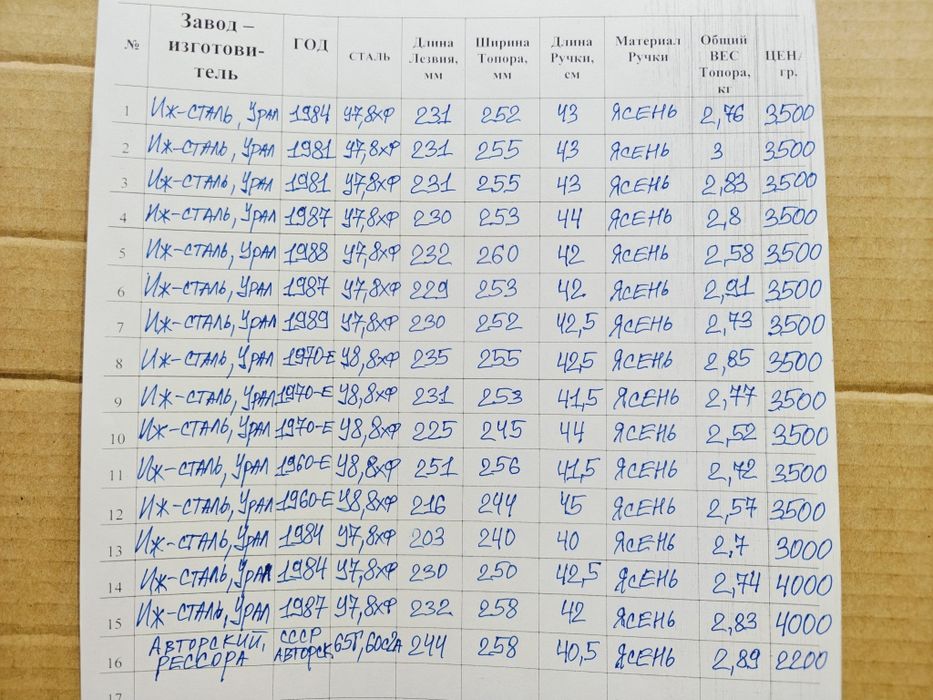 № Завод – изготови- тель ГОД СТАЛЬ Длина Лезвия, мм Ширина Топора, мм Длина Ручки, см Материал Ручки Общий ВЕС Топора, кг ЦЕН/ гр.
1 Иж-СТАЛЬ, УРАЛ 1984 У7,8ХФ 231 252 43 ЯСЕНЬ 2,76 3500
2 Иж-СТАЛЬ, УРАЛ 1981 У7,8ХФ 231 255 43 ЯСЕНЬ 3 3500
3 Иж-СТАЛЬ, УРАЛ 1981 У7,8ХФ 231 255 43 ЯСЕНЬ 2,83 3500
4 Иж-СТАЛЬ, УРАЛ 1987 У7,8ХФ 230 253 44 ЯСЕНЬ 2,8 3500
5 Иж-СТАЛЬ, УРАЛ 1988 У7,8ХФ 232 260 42 ЯСЕНЬ 2,58 3500
6 Иж-СТАЛЬ, УРАЛ 1987 У7,8ХФ 229 253 42 ЯСЕНЬ 2,91 3500
7 Иж-СТАЛЬ, УРАЛ 1989 У7,8ХФ 230 252 42,5 ЯСЕНЬ 2,73 3500
8 Иж-СТАЛЬ, УРАЛ 1970-Е У8,8ХФ 235 255 42,5 ЯСЕНЬ 2,85 3500
9 Иж-СТАЛЬ, УРАЛ 1970-Е У8,8ХФ 231 253 41,5 ЯСЕНЬ 2,77 3500
10 Иж-СТАЛЬ, УРАЛ 1970-Е У8,8ХФ 225 245 44 ЯСЕНЬ 2,52 3500
11 Иж-СТАЛЬ, УРАЛ 1960-Е У8,8ХФ 251 256 41,5 ЯСЕНЬ 2,72 3500
12 Иж-СТАЛЬ, УРАЛ 1960-Е У8,8ХФ 216 244 45 ЯСЕНЬ 2,57 3500
13 Иж-СТАЛЬ, УРАЛ 1984 У7,8ХФ 203 240 40 ЯСЕНЬ 2,7 3000
14 Иж-СТАЛЬ, УРАЛ 1984 У7,8ХФ 230 250 42,5 ЯСЕНЬ 2,74 4000
15 Иж-СТАЛЬ, УРАЛ 1987 У7,8ХФ 232 258 42 ЯСЕНЬ 2,83 4000
16 АВТОРСКИЙ, РЕССОРА СССР АВТОРСК. 65Г, 60С2А 244 258 40,5 ЯСЕНЬ 2,89 2200
17